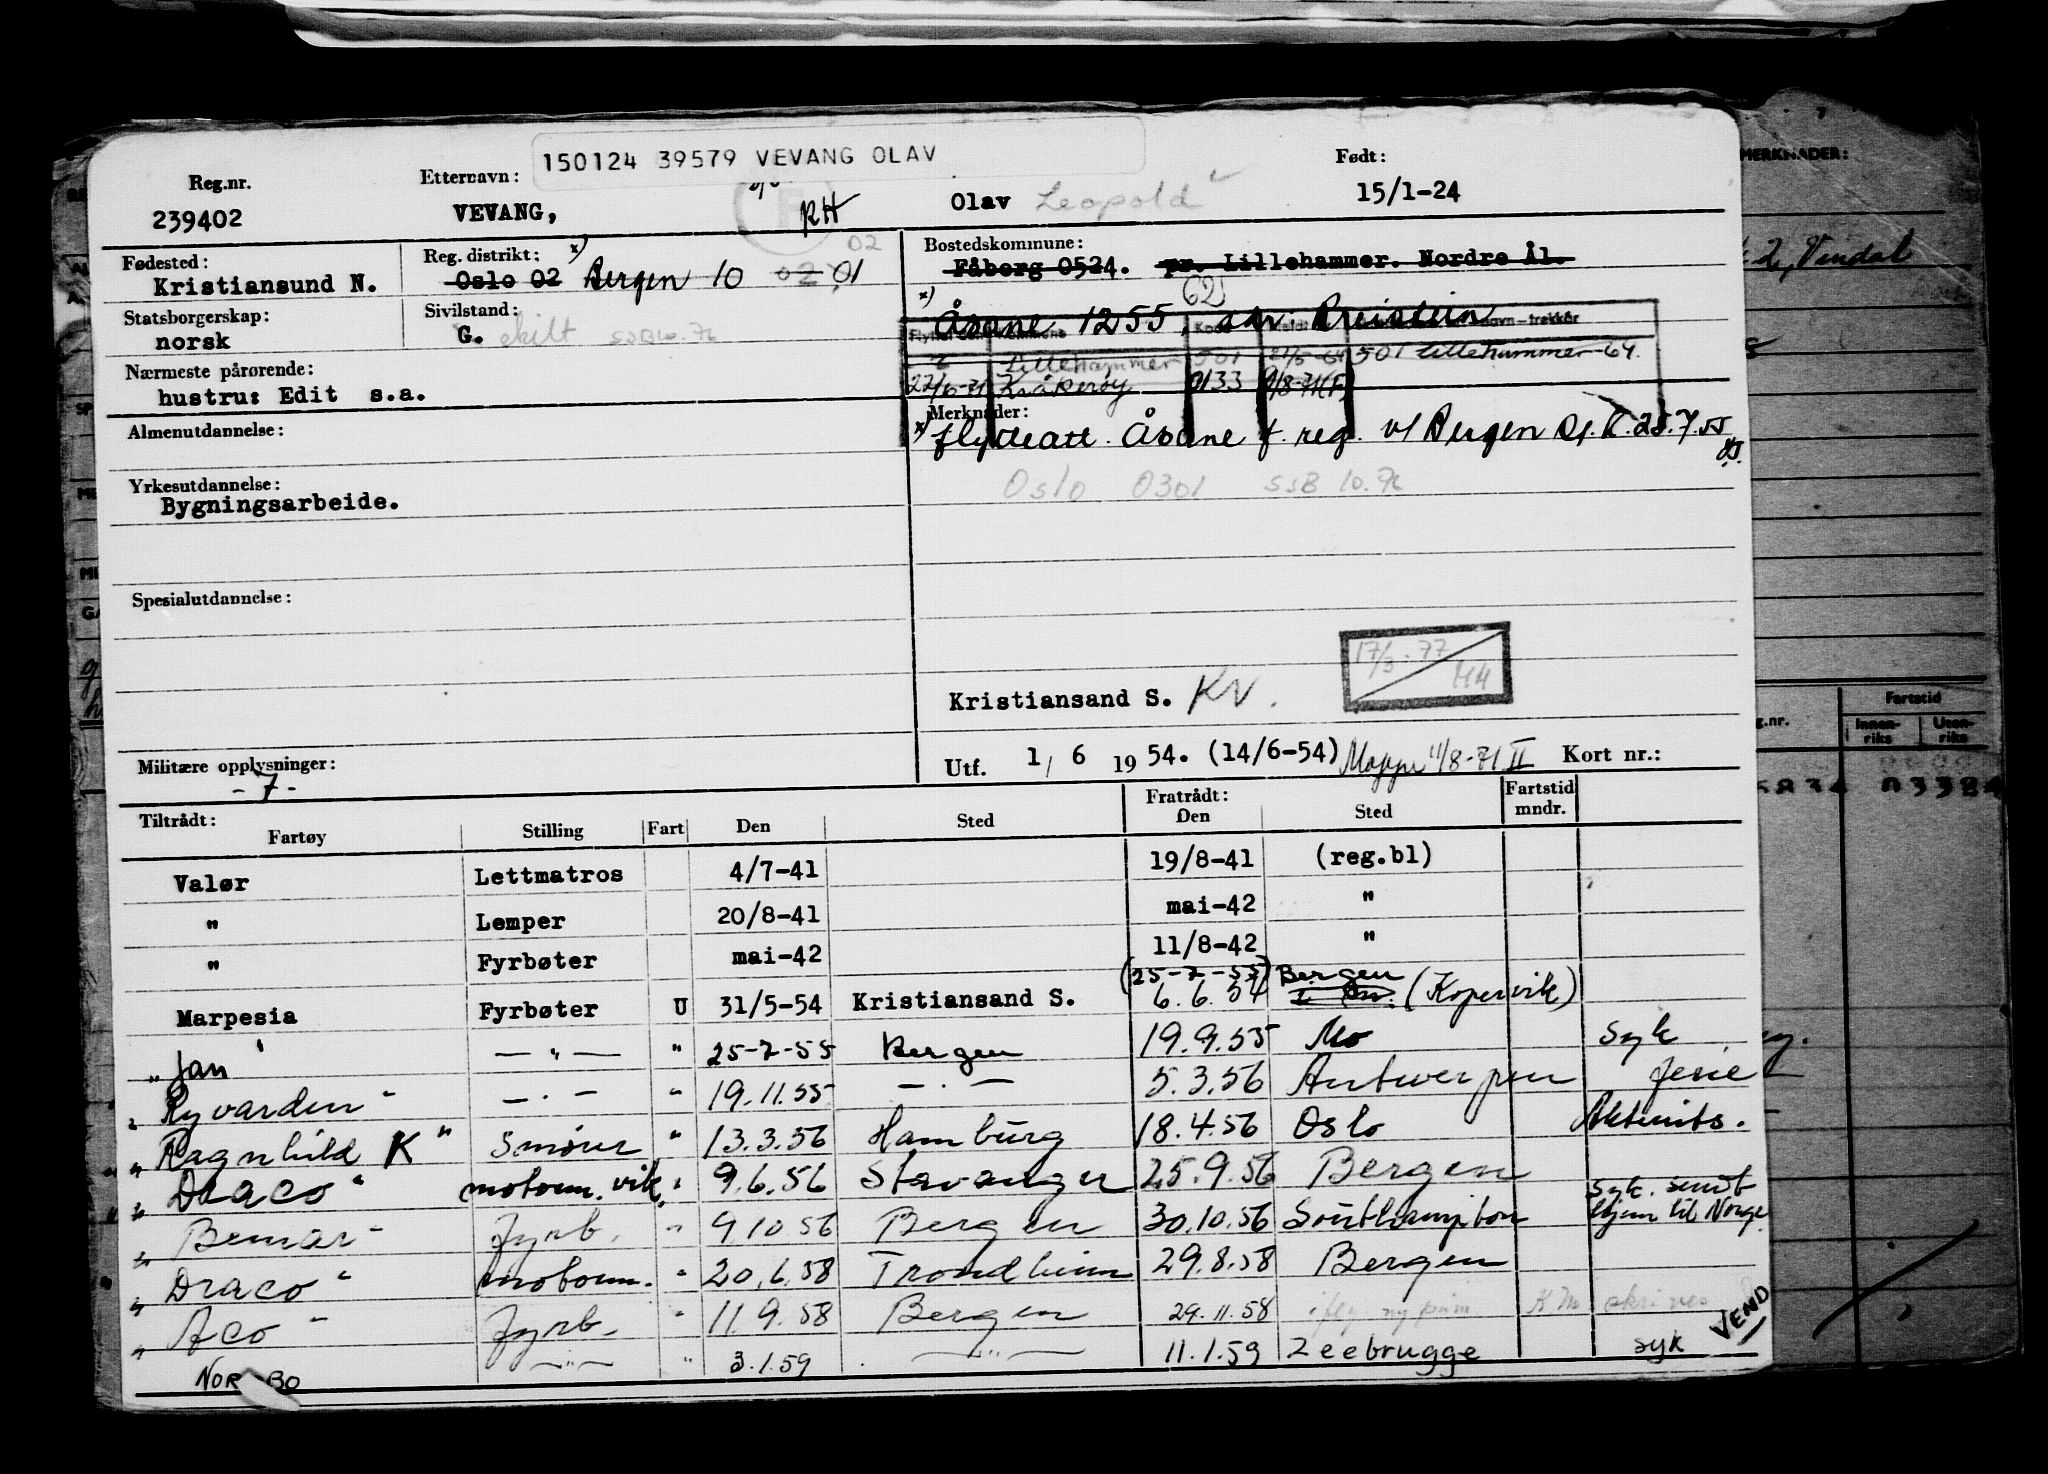 150124 39579 VEVANG OLAV
Reg.nr. Etternavn: Født:
239402 VEVANG, RH Olav Leopold 15/1-24
Fødested: Reg. distrikt: x) 02 Bostedskommune:
Kristiansund N. Oslo 02 Bergen 10 02 01 Fåberg 0524. pr. Lillehammer. Nordre Ål.
Statsborgerskap: Sivilstand: x) Åsane 1255, adr. Breistein (62)
norsk G. skilt SSB 10.76
Lillehammer 501 21/5-64 501 Lillehammer 64.
Nærmeste pårørende: 22/6-71 Kråkerøy 0133 9/8-71(F)
hustru: Edit s.a.
Almenutdannelse: Merknader:
x) flytteatt. Åsane f. reg. v/ Bergen Sj.K. 25.7.55
Yrkesutdannelse: Oslo 0301 SSB 10.76
Bygningsarbeide.
Spesialutdannelse:
17/3-77
Kristiansand S. KV.
Militære opplysninger: Utf. 1/ 6 1954. (14/6-54) Mappe 11/8-71 II Kort nr.:
- 7 -
Tiltrådt: Fratrådt: Fartstid
Fartøy Stilling Fart Den Sted Den Sted mndr.
Valør Lettmatros 4/7-41 19/8-41 (reg.bl)
" Lemper 20/8-41 mai-42 "
" Fyrbøter mai-42 11/8-42 "
(25-7-55) Bergen
Marpesia Fyrbøter U 31/5-54 Kristiansand S. 6.6.54 (Kopervik)
"Jan" — " — " 25-7-55 Bergen 19.9.55 Mo Syk
"Ryvarden" — " — " 19.11.55 — " — 5.3.56 Antwerpen Ferie
"Ragnhild K" Smører " 13.3.56 Hamburg 18.4.56 Oslo Aktenits.
"Draco" motorm. vik. " 9.6.56 Stavanger 25.9.56 Bergen
"Bemar" Fyrb. " 9.10.56 Bergen 30.10.56 Southampton Syk. sendt hjem til Norge
"Draco" motorm. " 20.6.58 Trondheim 29.8.58 Bergen
"Aco" Fyrb. " 11.9.58 Bergen 29.11.58 skrives VEND
NOR BO — " — " 3.1.59 — " — 11.1.59 Zeebrugge syk
MERKNADER:
Fartstid
Innen-riks Uten-riks